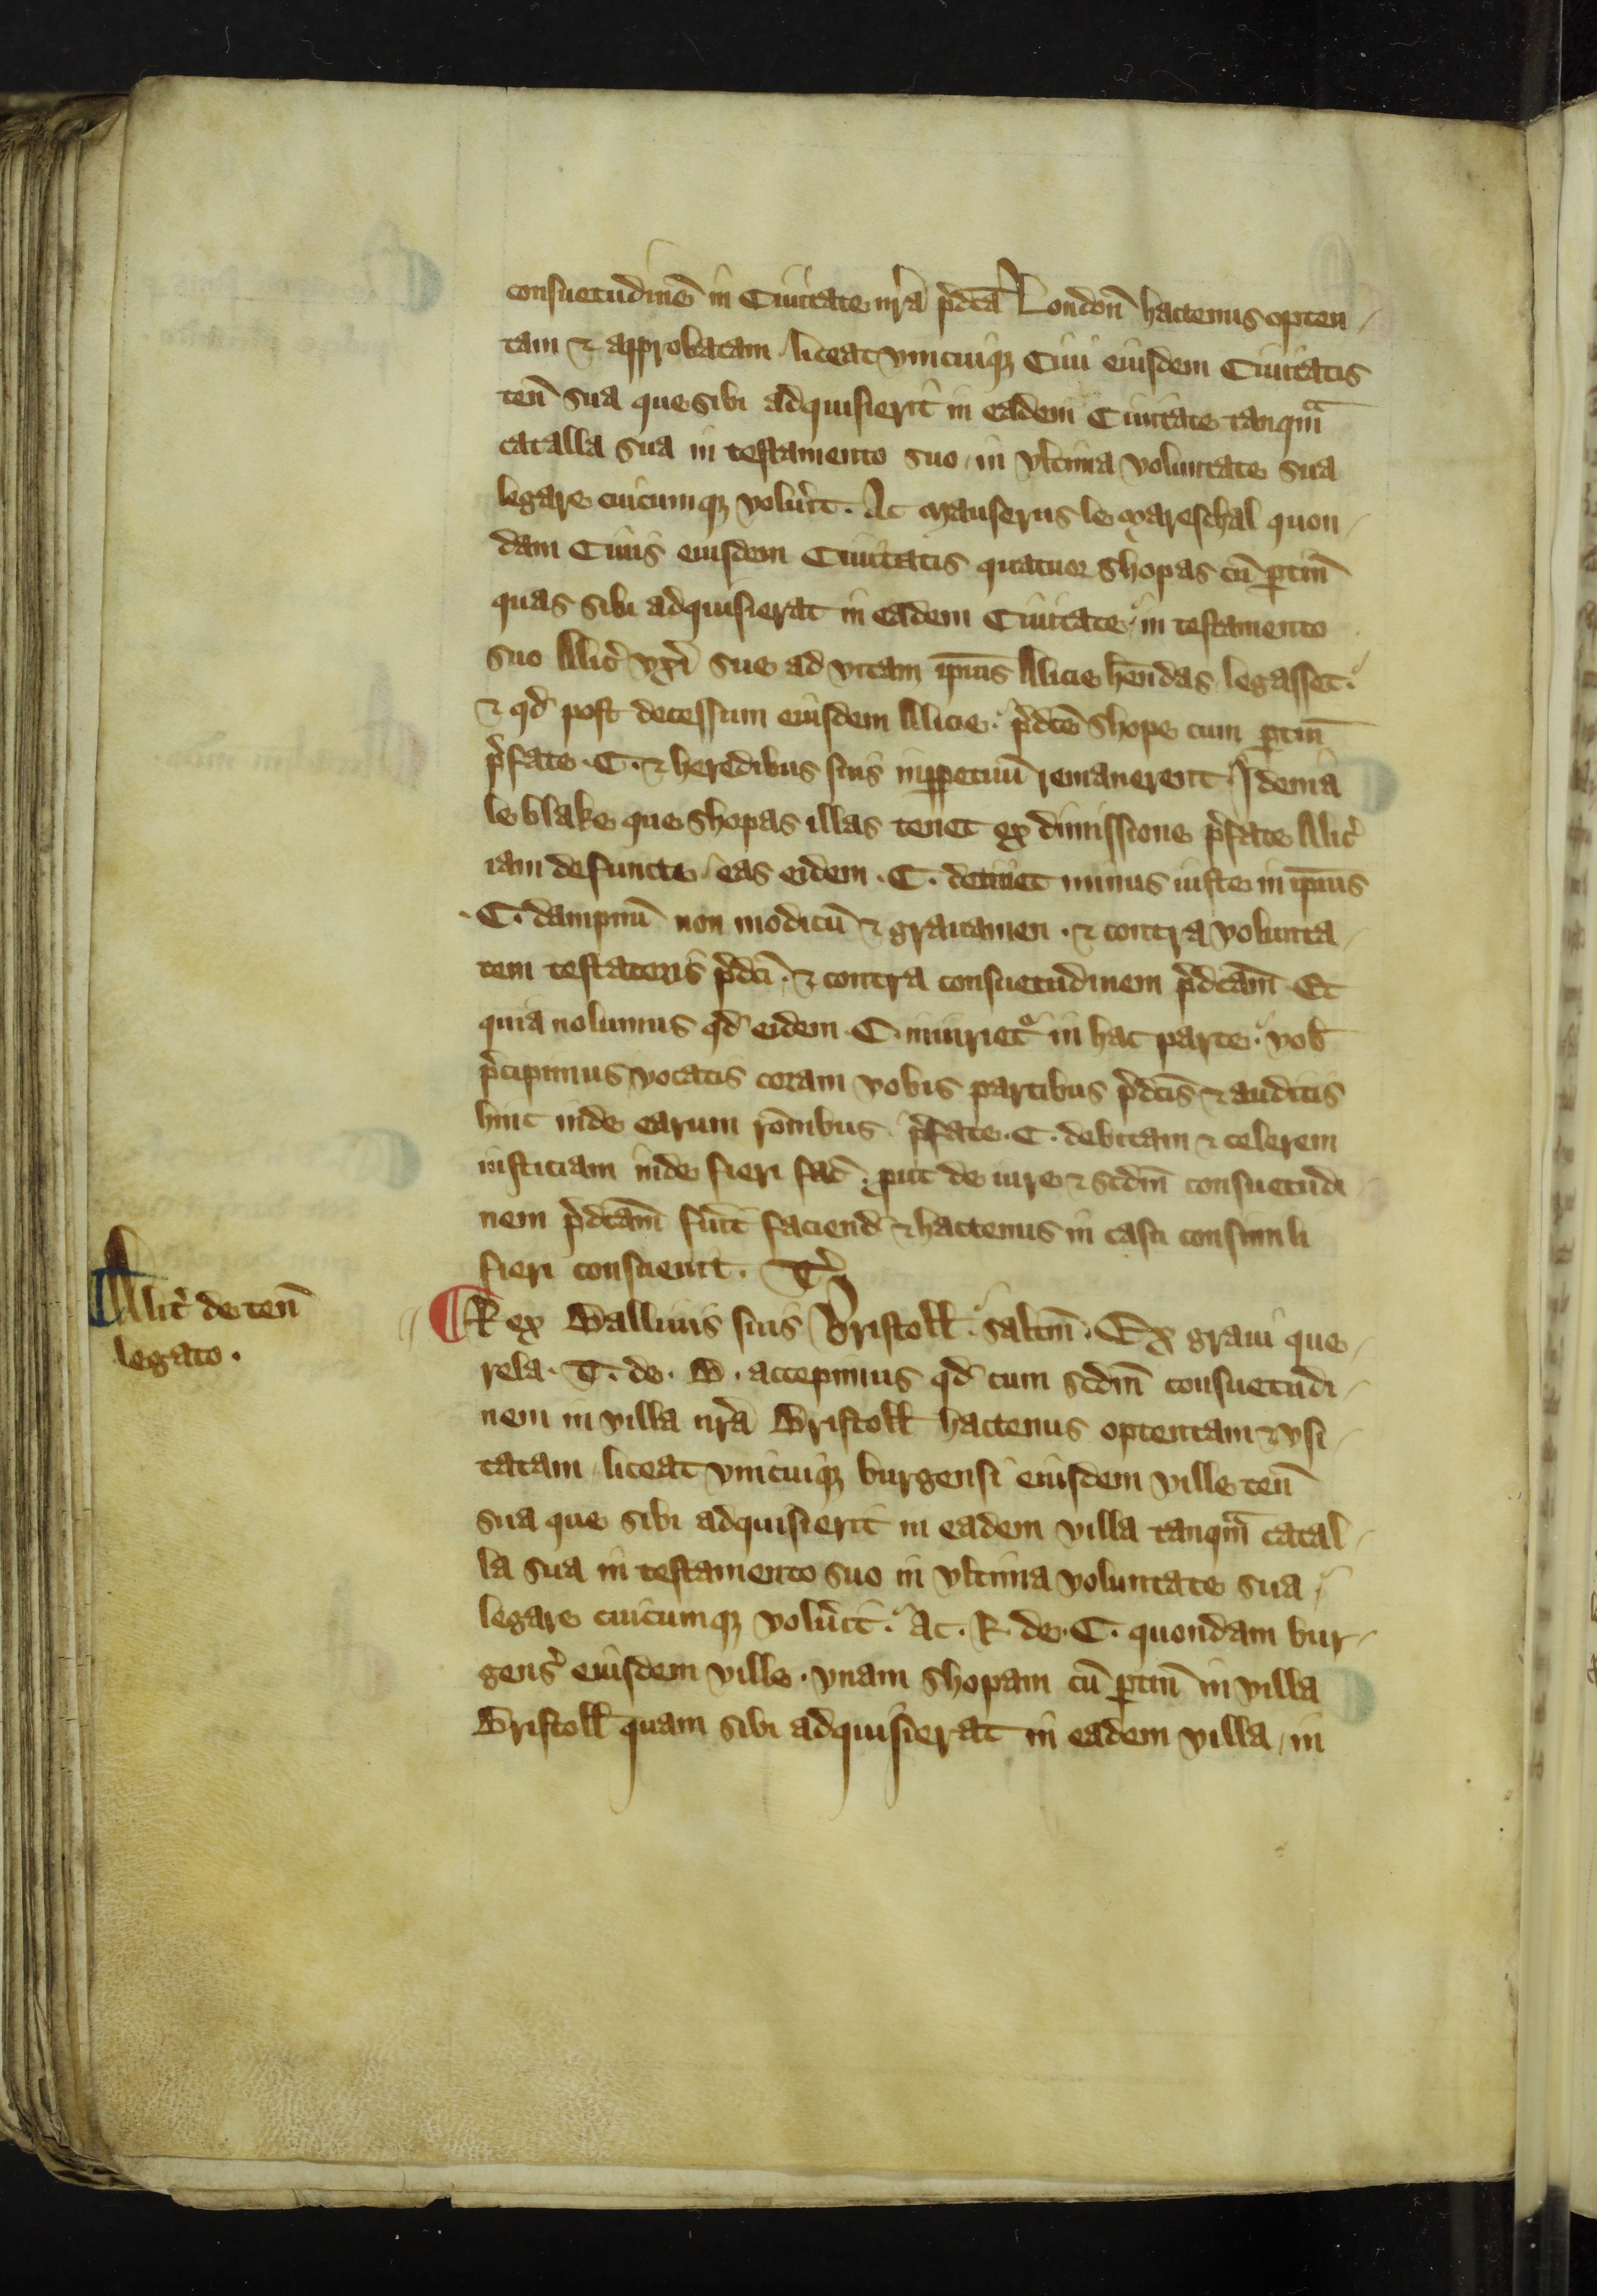 consuetudinē in Ciuitate nr̄a p̄dc̄a Londōn hactenus opten
tam ⁊ approbatam liceat vnicuiqꝫ Ciui eiusdem Ciuitatis
ten̄ sua que sibi adquisierit in eadem Ciuitate tanqᵃm
catalla sua in testamento suo in vltima voluntate sua
legare cuicumqꝫ voluīt. Ac Mauserus le Mareschal quon
dam Ciuis eiusdem Ciuitatis quatuor shopas cū ꝑtin̄
quas sibi adquisierat in eadem Ciuitate in testamento
suo Alic̄ vxi sue ad vitam ip̄ius Alicie hēndas legasset.
⁊ qd̄ post decessum eiusdem Alicie. p̄dc̄e shope cum ꝑtin̄
p̄fate .C. ⁊ heredibus suis inꝑpetuū remanerent Idema
le blake que shopas illas tenet ex dimissione p̄fate Alic̄
iam defuncte eas eidem .C. detinet minus iuste in ip̄ius
.C. dampnū non modicū ⁊ grauamen . ⁊ contra volunta
tem testatoris p̄dc̄i. ⁊ contra consuetudinem p̄dc̄am Et
quia nolumus qd̄ eidem C. iniuriet᷑ in hac parte. vob̄
p̄cipimus vocatis coram vobis partibus p̄dc̄is ⁊ auditis
hinc inde earum rōnibus p̄fate .C. debitam ⁊ celerem
iusticiam inde fieri fac̄ . ꝓut de iure ⁊ scdm̄ consuetudi
nem p̄dc̄am fūīt faciend̄ ⁊ hactenus in casu consimili
fieri consueuit. T̄
Alit̄ de ten̄
legato .
Rex Balliuis suis Bristoll̄ . saltm̄ . Ex graui que
rela . T. de . B . accepimus qd̄ cum scdm̄ consuetudi
nem in villa nr̄a Bristoll̄ hactenus optentam ⁊ vsi
tatam liceat vnicuiqꝫ burgensi eiusdem ville ten̄
sua que sibi adquisierit in eadem villa tanqᵃm catal
la sua in testamento suo in vltima voluntate sua
legare cuicumqꝫ voluīt . Ac . R . de . C . quondam bur
gens̄ eiusdem ville . vnam shopam cū ꝑtin̄ in villa
Bristoll̄ quam sibi adquisierat in eadem villa in